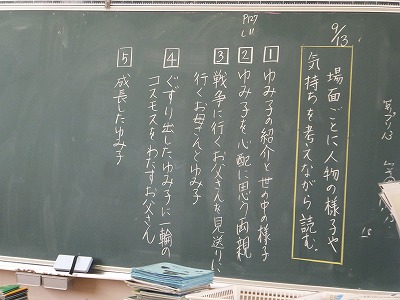 9/13
場面ごとに人物の様子や
気持ちを考えながら読む。
1 ゆみ子の紹介と世の中の様子
2 ゆみ子を心配に思う両親
3 戦争に行くお父さんを見送りに
行くお母さんとゆみ子
4 ぐずり出したゆみ子に一輪の
コスモスをわたすお父さん
5 成長したゆみ子